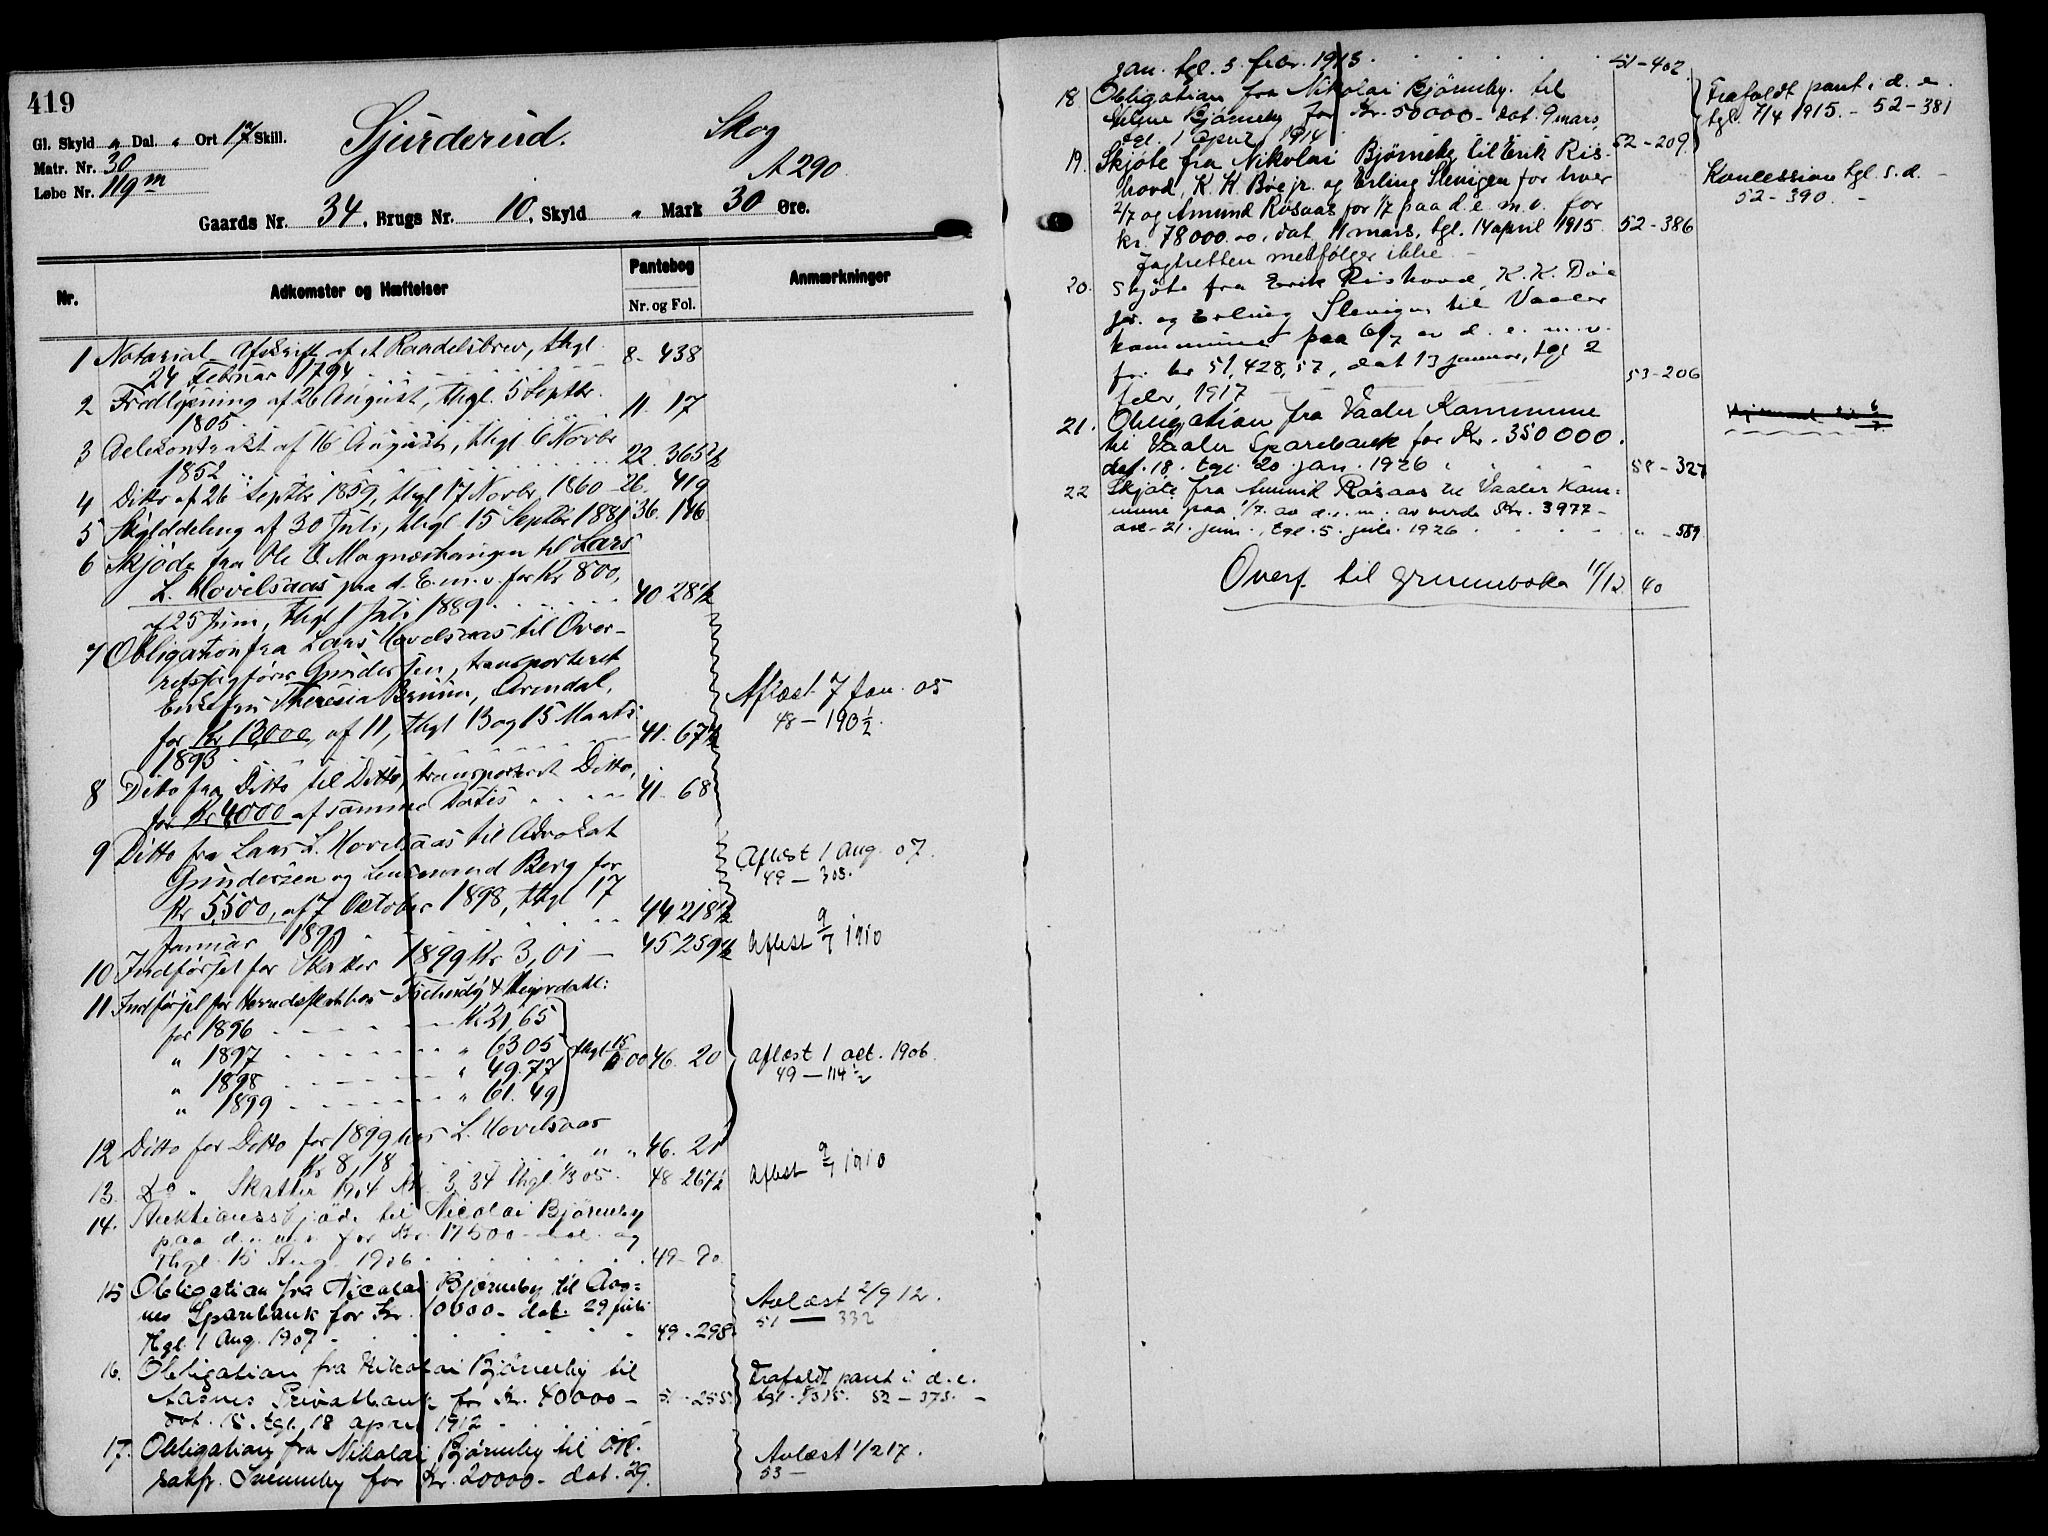 419
Gl. Skyld " Dal. " Ort 12 Skill.
Matr. Nr. 30
Løbe Nr. 119 m
Sjurderud.
Skog
A 290
Gaards Nr. 34, Brugs Nr. 10, Skyld " Mark 30 Øre.
Nr.
Adkomster og Hæftelser
Pantebog
Nr. og Fol.
Anmærkninger
1 Notarial Afskrift af et Raadelsbrev, thgl. 8- 438
24 Februar 1794
2 Fredlysning af 26 August, thgl. 5 Septbr. 11. 17
1805.
3 Delekontrakt af 16 August, thgl 6 Novbr 22. 365½
1852
4 Ditto af 26 Septbr 1859, thgl 17 Novbr 1860 - 26. 419
5 Skylddeling af 30 Juli, thgl 15 Septbr 1881 36. 146
6 Skjøde fra Ole O. Magneshaugen til Lars
L. Hovelsaas paa d. E. m. v. for Kr 800,
af 25 Juni, thgl 1 Juli 1889 40 28½
7 Obligation fra Lars Hovelsaas til Over-
retssagfører Gundersen, transporteret
Enkefru Theresia Bruun, Arendal,
for Kr 13000, af 11, thgl 13 og 15 Marts 41. 67½
1893
Aflæst 7 Jan. 05
48 – 190½.
8 Ditto fra Ditto til Ditto, transporteret Ditto,
for Kr 4,000 af samme Datis 41. 68
9 Ditto fra Lars L. Hovelsaas til Advokat
Gundersen og Lensmand Berg for
Kr 5,500, af 7 October 1898, thgl 17
Januar 1899 44 218½
Aflæst 1 Aug. 07.
49 – 303.
10 Indførsel for Skatter 1899 Kr 3,01 – 45 259½
Aflæst 9/7 1910
11 Indførsel for Herredsskat hos Tschudy & Heyerdahl:
for 1896 Kr 21,65
" 1897 " 63 05
" 1898 " 49.77
" 1899 " 61. 49
thgl 15/6 00 46. 20
aflæst 1 oct. 1906.
49 – 114½
12 Ditto for Ditto for 1899 hos L. Hovelsaas
Kr 8,18 " " 46. 21
13. Do " Skatter 1904 Kr. 3,34 thgl 1/3 05. 48 267½
Aflæst 9/7 1910
14. Auktionsskjøde til Nicolai Bjørneby
paa d. e. m. v. for Kr. 17500 – dat. og
Thgl. 15 Aug. 1906 49 – 90
15 Obligation fra Nicolai Bjørneby til Aas-
nes Sparebank for Kr. 10000 – dat. 29 juli
thgl. 1 Aug. 1907 49 - 298
Avlæst 2/9 12.
51 — 332
16. Obligation fra Nikolai Bjørneby til
Aasnes Privatbank for Kr. 40000 –
dat. 15. tgl. 18 april 1912 51 - 255
Frafaldt pant i d. e.
17. Obligation fra Nikolai Bjørneby til OR.
sakfr. Svenneby for Kr. 20000 - dat. 29.
Avlæst 1/2 17.
53 –
jan. tgl. 3. febr. 1913. 51 - 402
18 Obligation fra Nikolai Bjørneby. til
Kr. 50000 - dat. 9 mars,
tgl. 1 april 1914 52 - 209.
Frafaldt pant i d. e.
tgl. 7/4 1915. - 52 - 381
19. Skjøte fra Nikolai Bjørneby til Erik Ris-
hovd, K. K. Bøe jr. og Erling Slevigen for hver
2/7 og Amund Røsaas for 1/7 paa d. e. m. v. for
kr. 78000.00, dat. 11 mars, tgl. 14 april 1915. 52 - 386
Jagtretten medfølger ikke. –
Koncession tgl. s. d. –
52 - 390. –
20. Skjøte fra Erik Rishovd, K. K. Bøe
jr. og Erling Slevigen til Vaaler
kommune paa 6/7 av d. e. m. v.
for kr 51,428,57, dat 13 januar, tgl 2
febr. 1917 53 - 206
21. Obligation fra Vaaler Kommune
til Vaaler Sparebank for Kr. 350000.
dat. 18. tgl. 20. jan. 1926 58 - 327
22 Skjøte fra Amund Røsaas til Vaaler Kom-
mune paa 1/7. av d. e. m. av verde Kr. 3977 –
dat. 21. juni, tgl. 5. juli 1926 " - 589
Overf. til grunnboka 11/12. 40